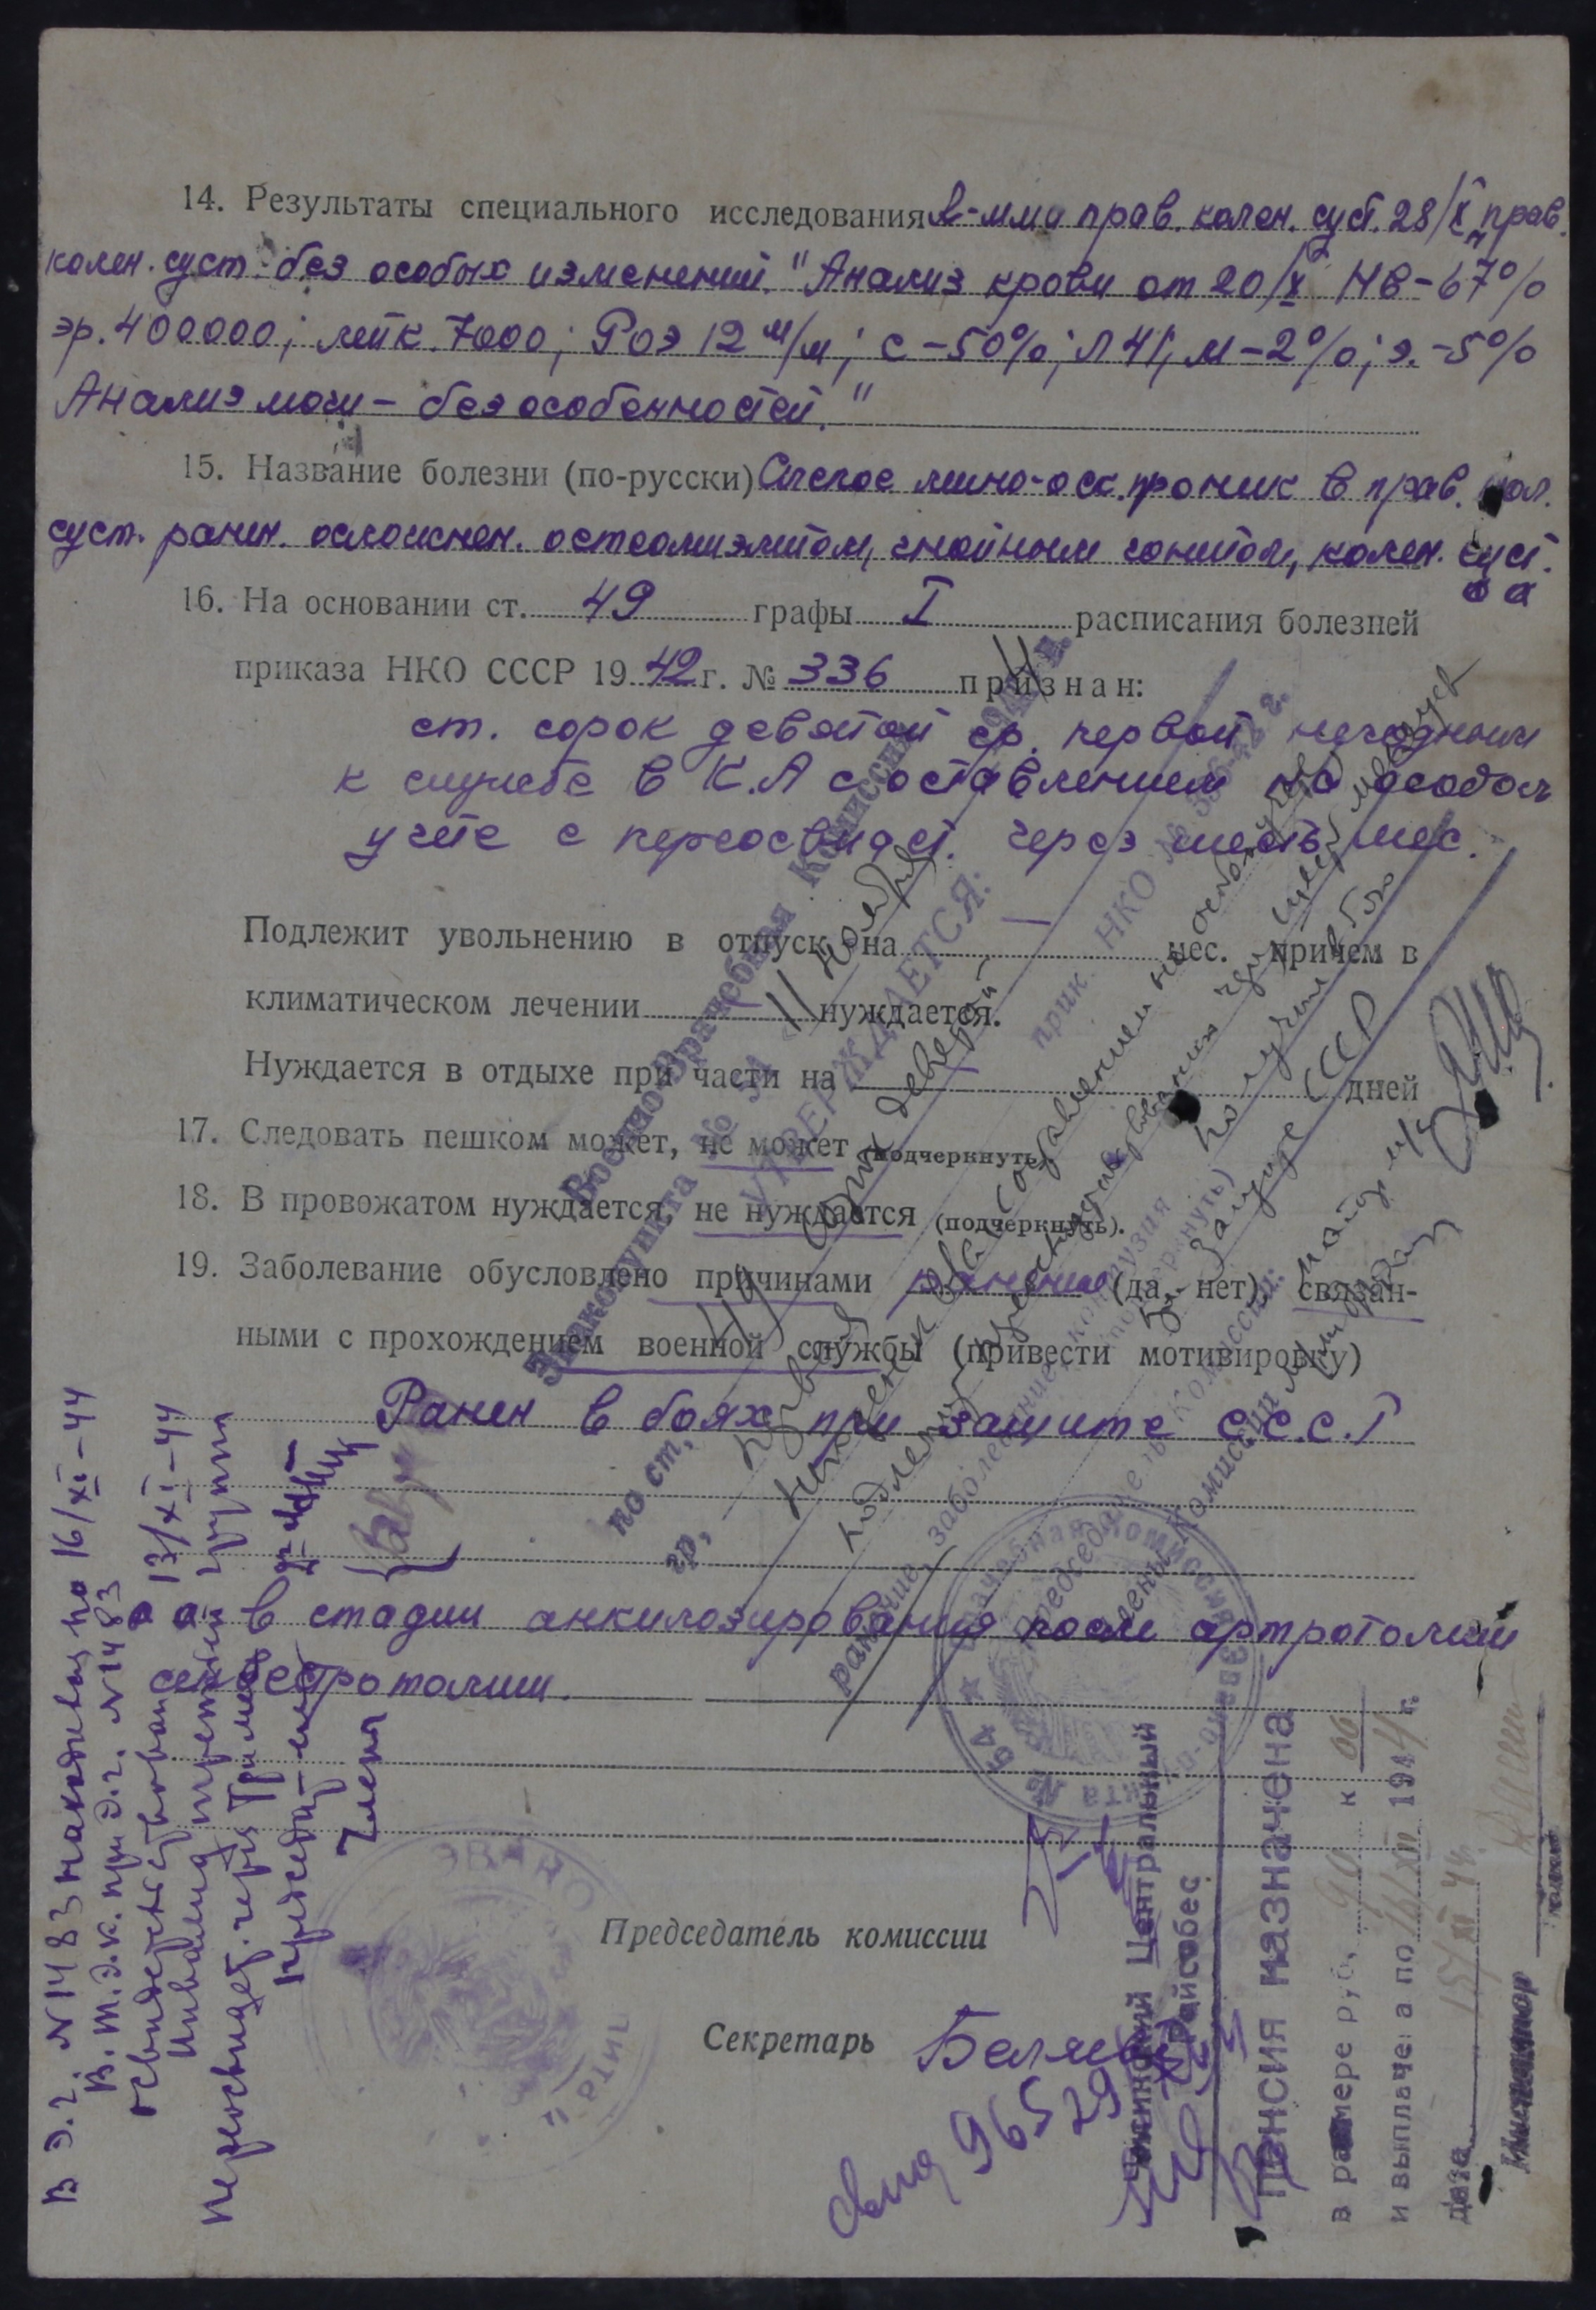 14. Результаты специального исследования R-мма прав. колен. суст. 28/X „прав.
колен. суст. без особых изменений." Анализ крови от 20/X НВ-67%
эр. 400000; лейк. 7000; РОЭ 12 м/м; с-50%; Л 41, м-2%; э.-5%
Анализ мочи - без особенностей."
15. Название болезни (по-русски) Слепое мино-оск. проник в прав. кол.
суст. ранен. осложнен. остеомиэлитом, гнойным гонитом, колен. суст.
16. На основании ст. 49 графы I расписания болезней
приказа НКО СССР 1942 г. № 336 признан:
ст. сорок девятой гр. первой негодным
к службе в К.А с оставлением на особом
учете с переосвидет. через шесть мес.
Подлежит увольнению в отпуск на мес. причем в
климатическом лечении нуждается.
Нуждается в отдыхе при части на дней
17. Следовать пешком может, не может (подчеркнуть).
18. В провожатом нуждается, не нуждается (подчеркнуть).
19. Заболевание обусловлено причинами ранение (да, нет) связан-
ными с прохождением военной службы (привести мотивировку)
Ранен в боях при защите С.С.С.Р
в стадии анкилозирования после артротомии
секвестротомии.
Председатель комиссии
Секретарь Беляев
96529
Военно-Врачебная Комиссия
Эвакопункта № 54 „11" ноября 1944 г.
УТВЕРЖДАЕТСЯ:
по ст.
гр. первая
прик. НКО № 336-42 г.
подлежит переосвидетельствован
ранение, заболевание, контузия
(подчеркнуть)
получил в боях
при защите СССР
Председатель Комиссии:
Члены Комиссии
В э.г. N 1483 находился по 16/XI-44
В.Т.Э.К. при э.г. N 1483
освидетельствован 13/XI-44
Инвалид третьей группы
Председат.
Члены
Центральный
Райсобес
Пенсия назначена
в размере руб. 90 к 00
и выплачена по 16/XII 1944 г.
Дата 15/XI 44
Инспектор